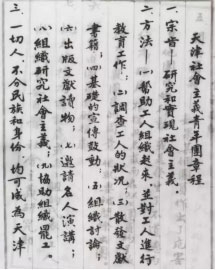 五 天津社會主義青年團章程
一、宗旨——研究和實現社會主義。
二、方法——㈠幫助工人組織起來，並對工人進行
教育工作；㈡調查工人的狀况；㈢散發文献
書籍；㈣基礎的宣傳鼓動；㈤組織討論；
㈥出版文献詩物；㈦邀請名人演講；
㈧組織研究社會主義；㈨協助組織罷工。
三、一切人，不分民族和身份，均可成為天津